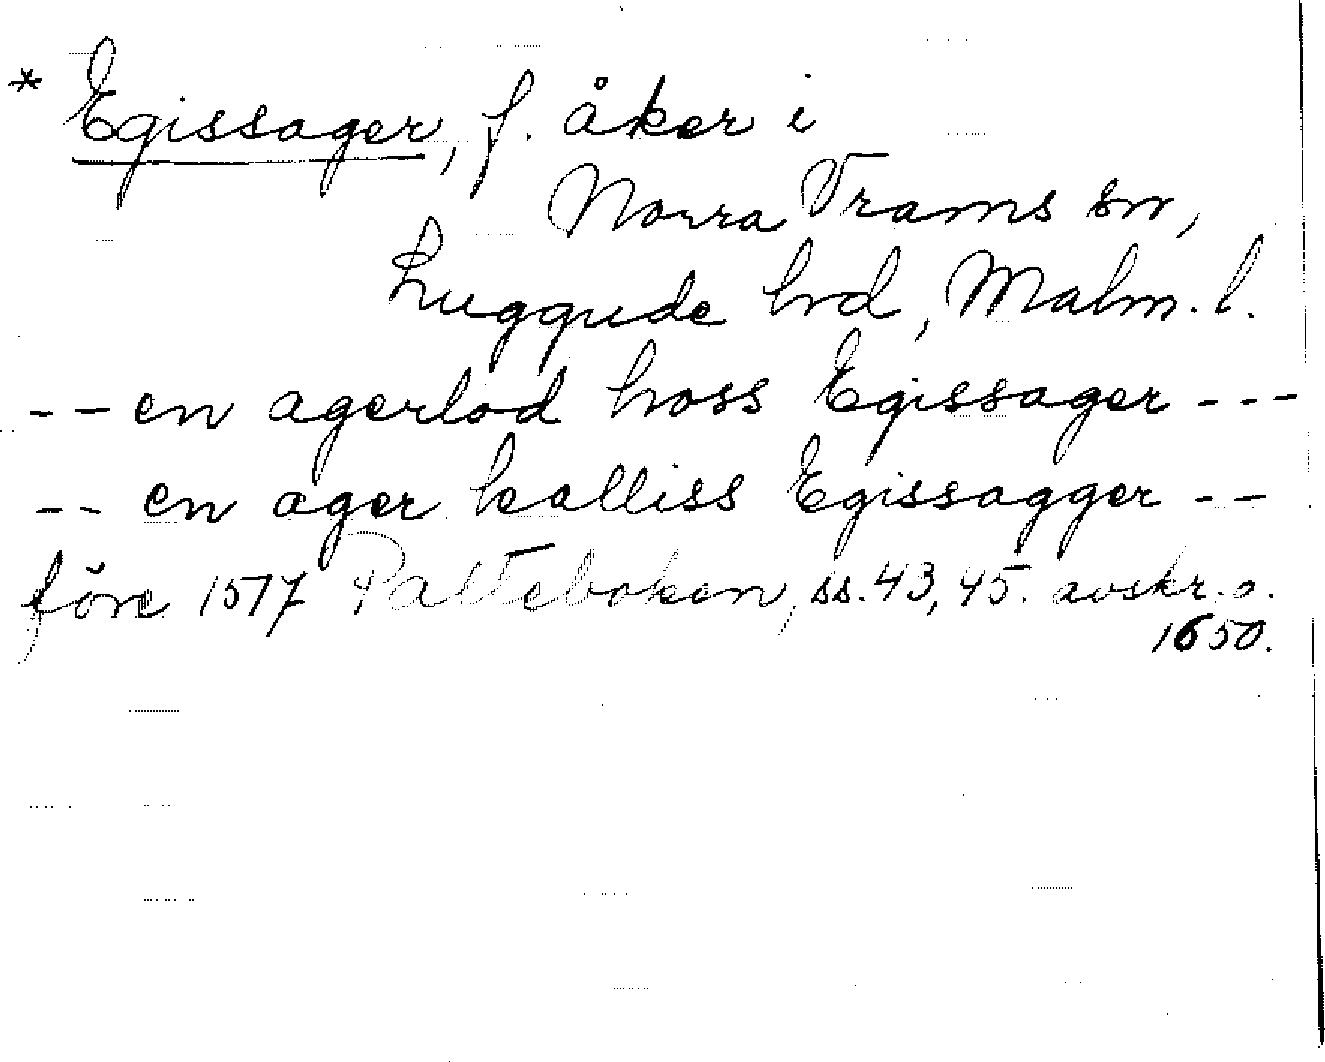 * Egissager, f. åker i
Norra Vrams sn,
Luggude hd, Malm. l.
-- en agerlod hoss Egissager ---
-- en ager kalliss Egissagger --
före 1577 Palteboken, ss. 43, 45. avskr. o.
1650.